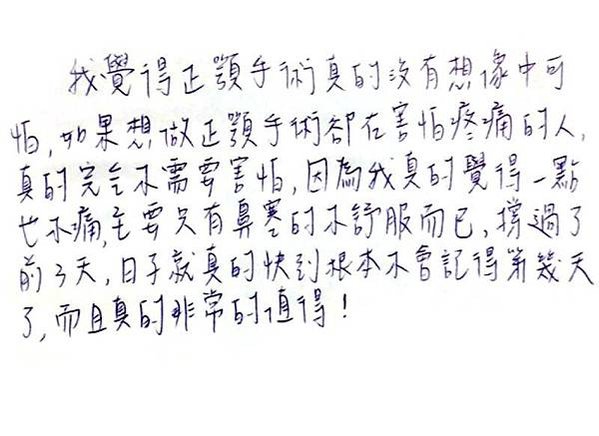 我覺得正顎手術真的沒有想像中可
怕,如果想做正顎手術卻在害怕疼痛的人,
真的完全不需要害怕,因為我真的覺得一點
也不痛,主要只有鼻塞的不舒服而已,撐過了
前3天,日子就真的快到根本不會記得第幾天
了,而且真的非常的值得!